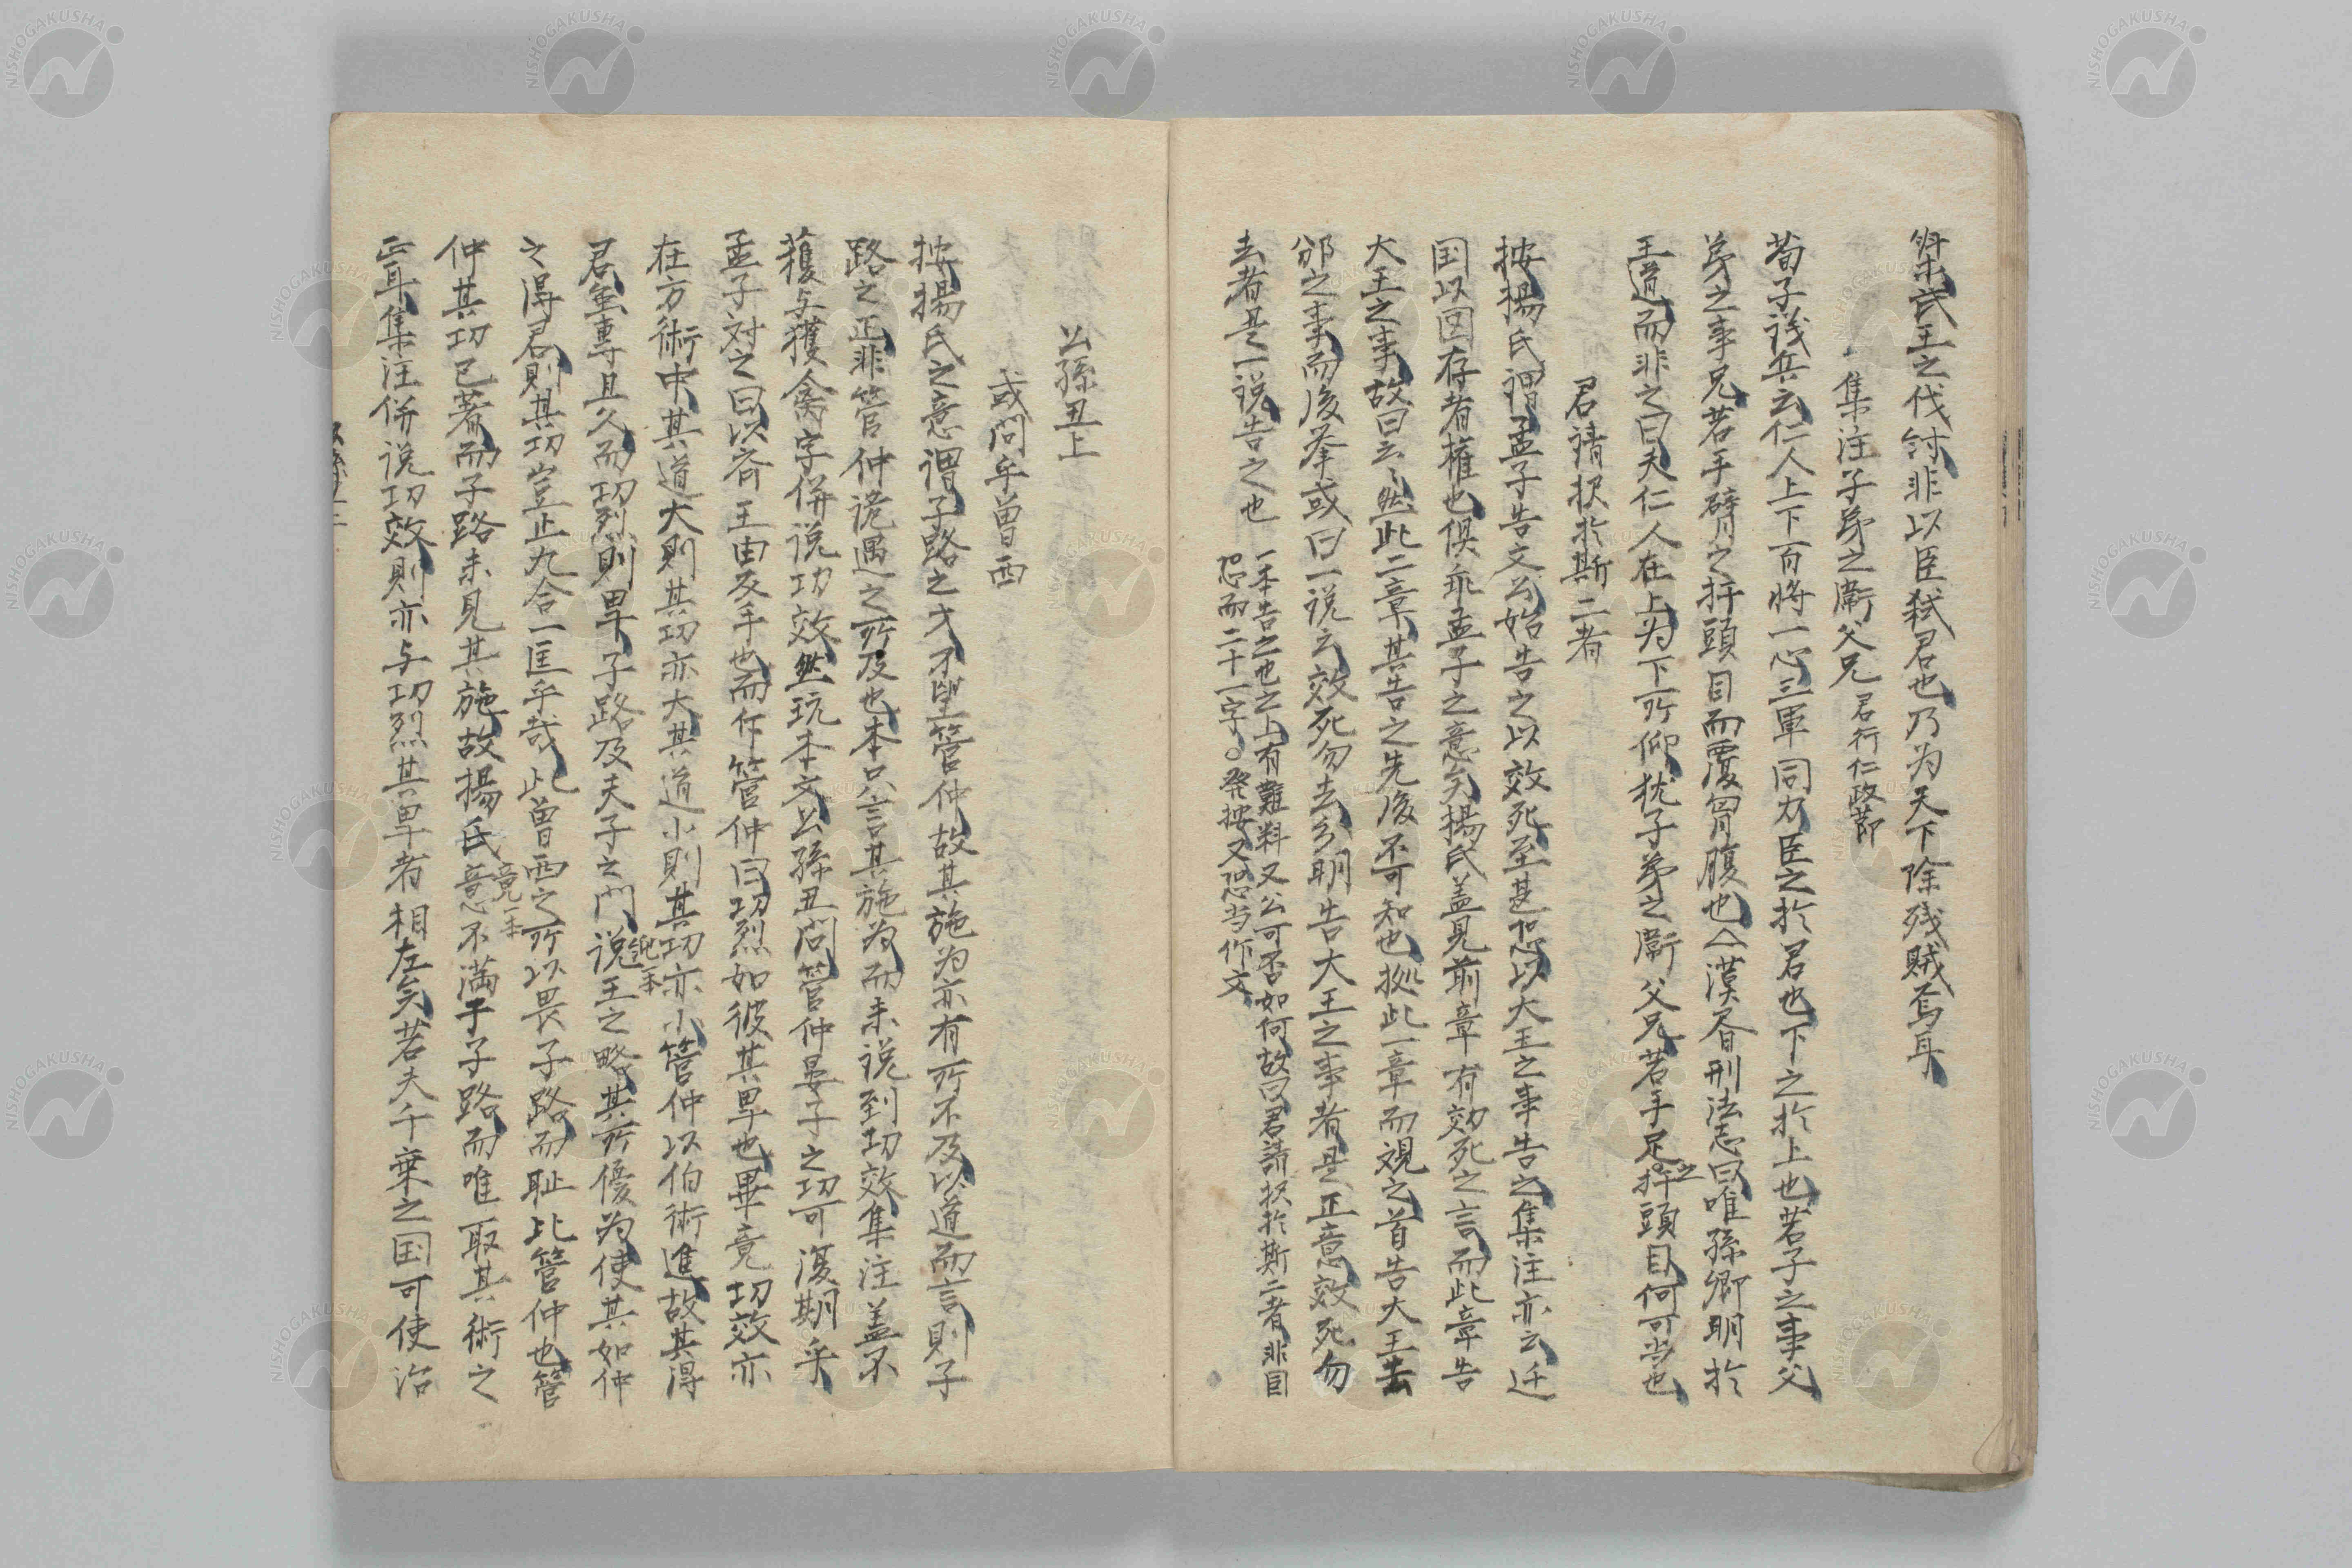 桀武王之伐討非以臣弑君也乃为天下除残賊焉耳
集注子弟之衛父兄 君行仁政節
荀子議兵云仁人上下百将一心三軍同力臣之於君也下之於上也若子之事父
弟之事兄若手臂之扞頭目而覆胷腹也〈漢㫺刑法志曰唯孫卿明於
王道而非之曰夫仁人在上为下所仰犹子弟之衛父兄若手足之扞頭目何可当也
君請択於斯二者
按揚氏謂孟子告文公始告之以效死至甚恐以大王之事告之集注亦云迁
国以図存者権也俱乖孟子之意矣揚氏盖見前章有効死之言而此章告
大王之事故曰云々然此二章其告之先後不可知也拠此一章而視之首告大王去
邠之事而後挙或曰一説云效死勿去分明告大王之事者是正意效死勿
去者是一説告之也
一本告之也之上有難料又公可否如何故曰君請択於斯二者非目
恐而二十一字。発按又恐当作文
公孫丑上
或問乎曽西
按揚氏之意謂子路之才不望管仲故其施为亦有所不及以道而言則子
路之正非管仲詭遇之所及也本只言其施为而未説到功效集注盖不
獲与獲禽字併説功效然玩本文公孫丑問管仲晏子之功可復期乎
孟子対之曰以斉王由反手也而作管仲曰功烈如彼其卑也畢竟功效亦
在方術中其道大則其功亦大其道小則其功亦小管仲以伯術進故其得
君亟専且久而功烈則卑子路及夫子之門説王之略其所優为使其如仲
之得君則其功豈止九合一匡乎哉此曽西之所以畏子路而耻比管仲也管
仲其功已著而子路未見其施故揚氏意不満于子路而唯取其術之
正耳集注併説功效則亦与功烈其卑者相左矣若夫千乗之国可使治
竟一本